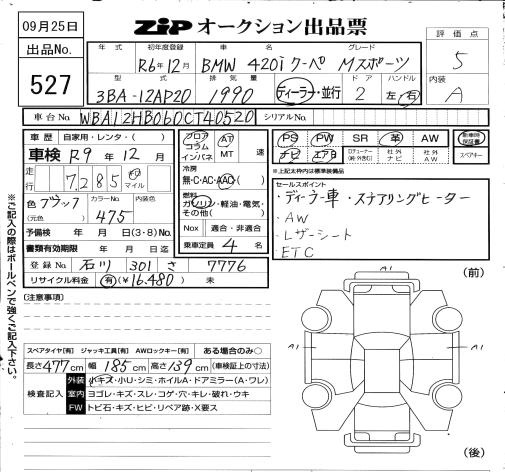 09月25日
出品No.
527
ZiP オークション出品票
評価点
5
内装
A
年式 初年度登録 車名 グレード
R6年12月 BMW 420i クーペ Mスポーツ
型式 排気量 ドア ハンドル
3BA-12AP20 1990 ディーラー・並行 2 左・右
車台No. WBA12HB060CT40520 シリアルNo.
車歴 自家用・レンタ・( )
車検 R9年12月
走行 7,285 km マイル
色 ブラック カラーNo. 475 内装色
(元色)
予備検 年 月 日(3・8)No.
書類有効期限 年 月 日迄
登録No. 石川 301 さ 7776
リサイクル料金 有(¥16,480) 未
フロア コラム インパネ
AT MT 速
冷房
無・C・AC・AAC
燃料
ガソリン・軽油・電気・その他( )
Nox 適合・非適合
乗車定員 4 名
PS PW SR 革 AW 新車時保証書
ナビ エアB 社外ナビ 社外AW スペアキー
※上記太枠内は標準装備品
セールスポイント
・ディーラー車・ステアリングヒーター
・AW
・レザーシート
・ETC
※ご記入の際はボールペンで強くご記入下さい。
[注意事項]
スペアタイヤ[有] ジャッキ工具[有] AWロックキー[有] ある場合のみ○
長さ 477cm 幅 185cm 高さ 139cm (車検証上の寸法)
検査記入
外装 小キズ・小U・シミ・ホイルA・ドアミラー(A・ワレ)
室内 ヨゴレ・キズ・スレ・コゲ・穴・キレ・破れ・ウキ
FW トビ石・キズ・ヒビ・リペア跡・X要ス
(前)
A1
A1 A1
A1
(後)